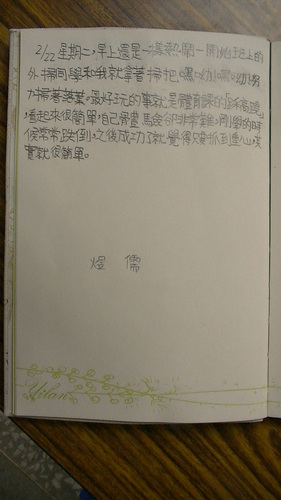 2/22 星期二,早上還是一樣熱鬧,一開始班上的
外掃同學和我就拿著掃把,嘿呦嘿呦努
力掃著落葉。最好玩的事就是體育課的「
看起來很簡單,自己體驗卻非常難,剛學的時
候常常跌倒,之後成功了就覺得只要抓到重心,其
實就很簡單。
煜 儒
Yilan